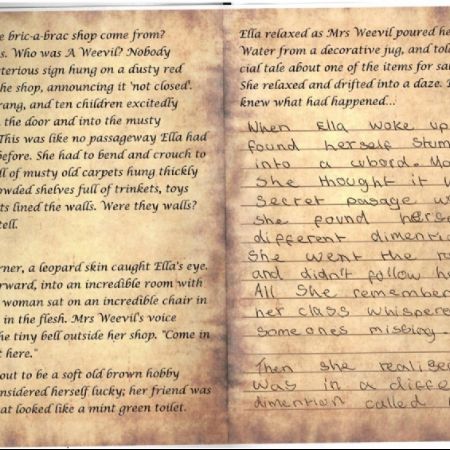 e bric-a-brac shop come from?
s. Who was A Weevil? Nobody
terious sign hung on a dusty red
he shop, announcing it 'not closed'.
rang, and ten children excitedly
the door and into the musty
This was like no passageway Ella had
before. She had to bend and crouch to
ll of musty old carpets hung thickly
owded shelves full of trinkets, toys
ts lined the walls. Were they walls?
tell.
rner, a leopard skin caught Ella's eye.
rward, into an incredible room with
woman sat on an incredible chair in
in the flesh. Mrs Weevil's voice
he tiny bell outside her shop. "Come in
t here."
out to be a soft old brown hobby
nsidered herself lucky; her friend was
at looked like a mint green toilet.
Ella relaxed as Mrs Weevil poured he
Water from a decorative jug, and tol
cial tale about one of the items for sa
She relaxed and drifted into a daze. 
knew what had happened...
When Ella woke up
found herself stum
into a cubord. Ma
She thought it w
secret pasage w
She found herse
different dimentio
She went the r
and didn't follow h
All She remember
her class whispere
Some ones missing.
Then she realise
was in a diffe
dimention called